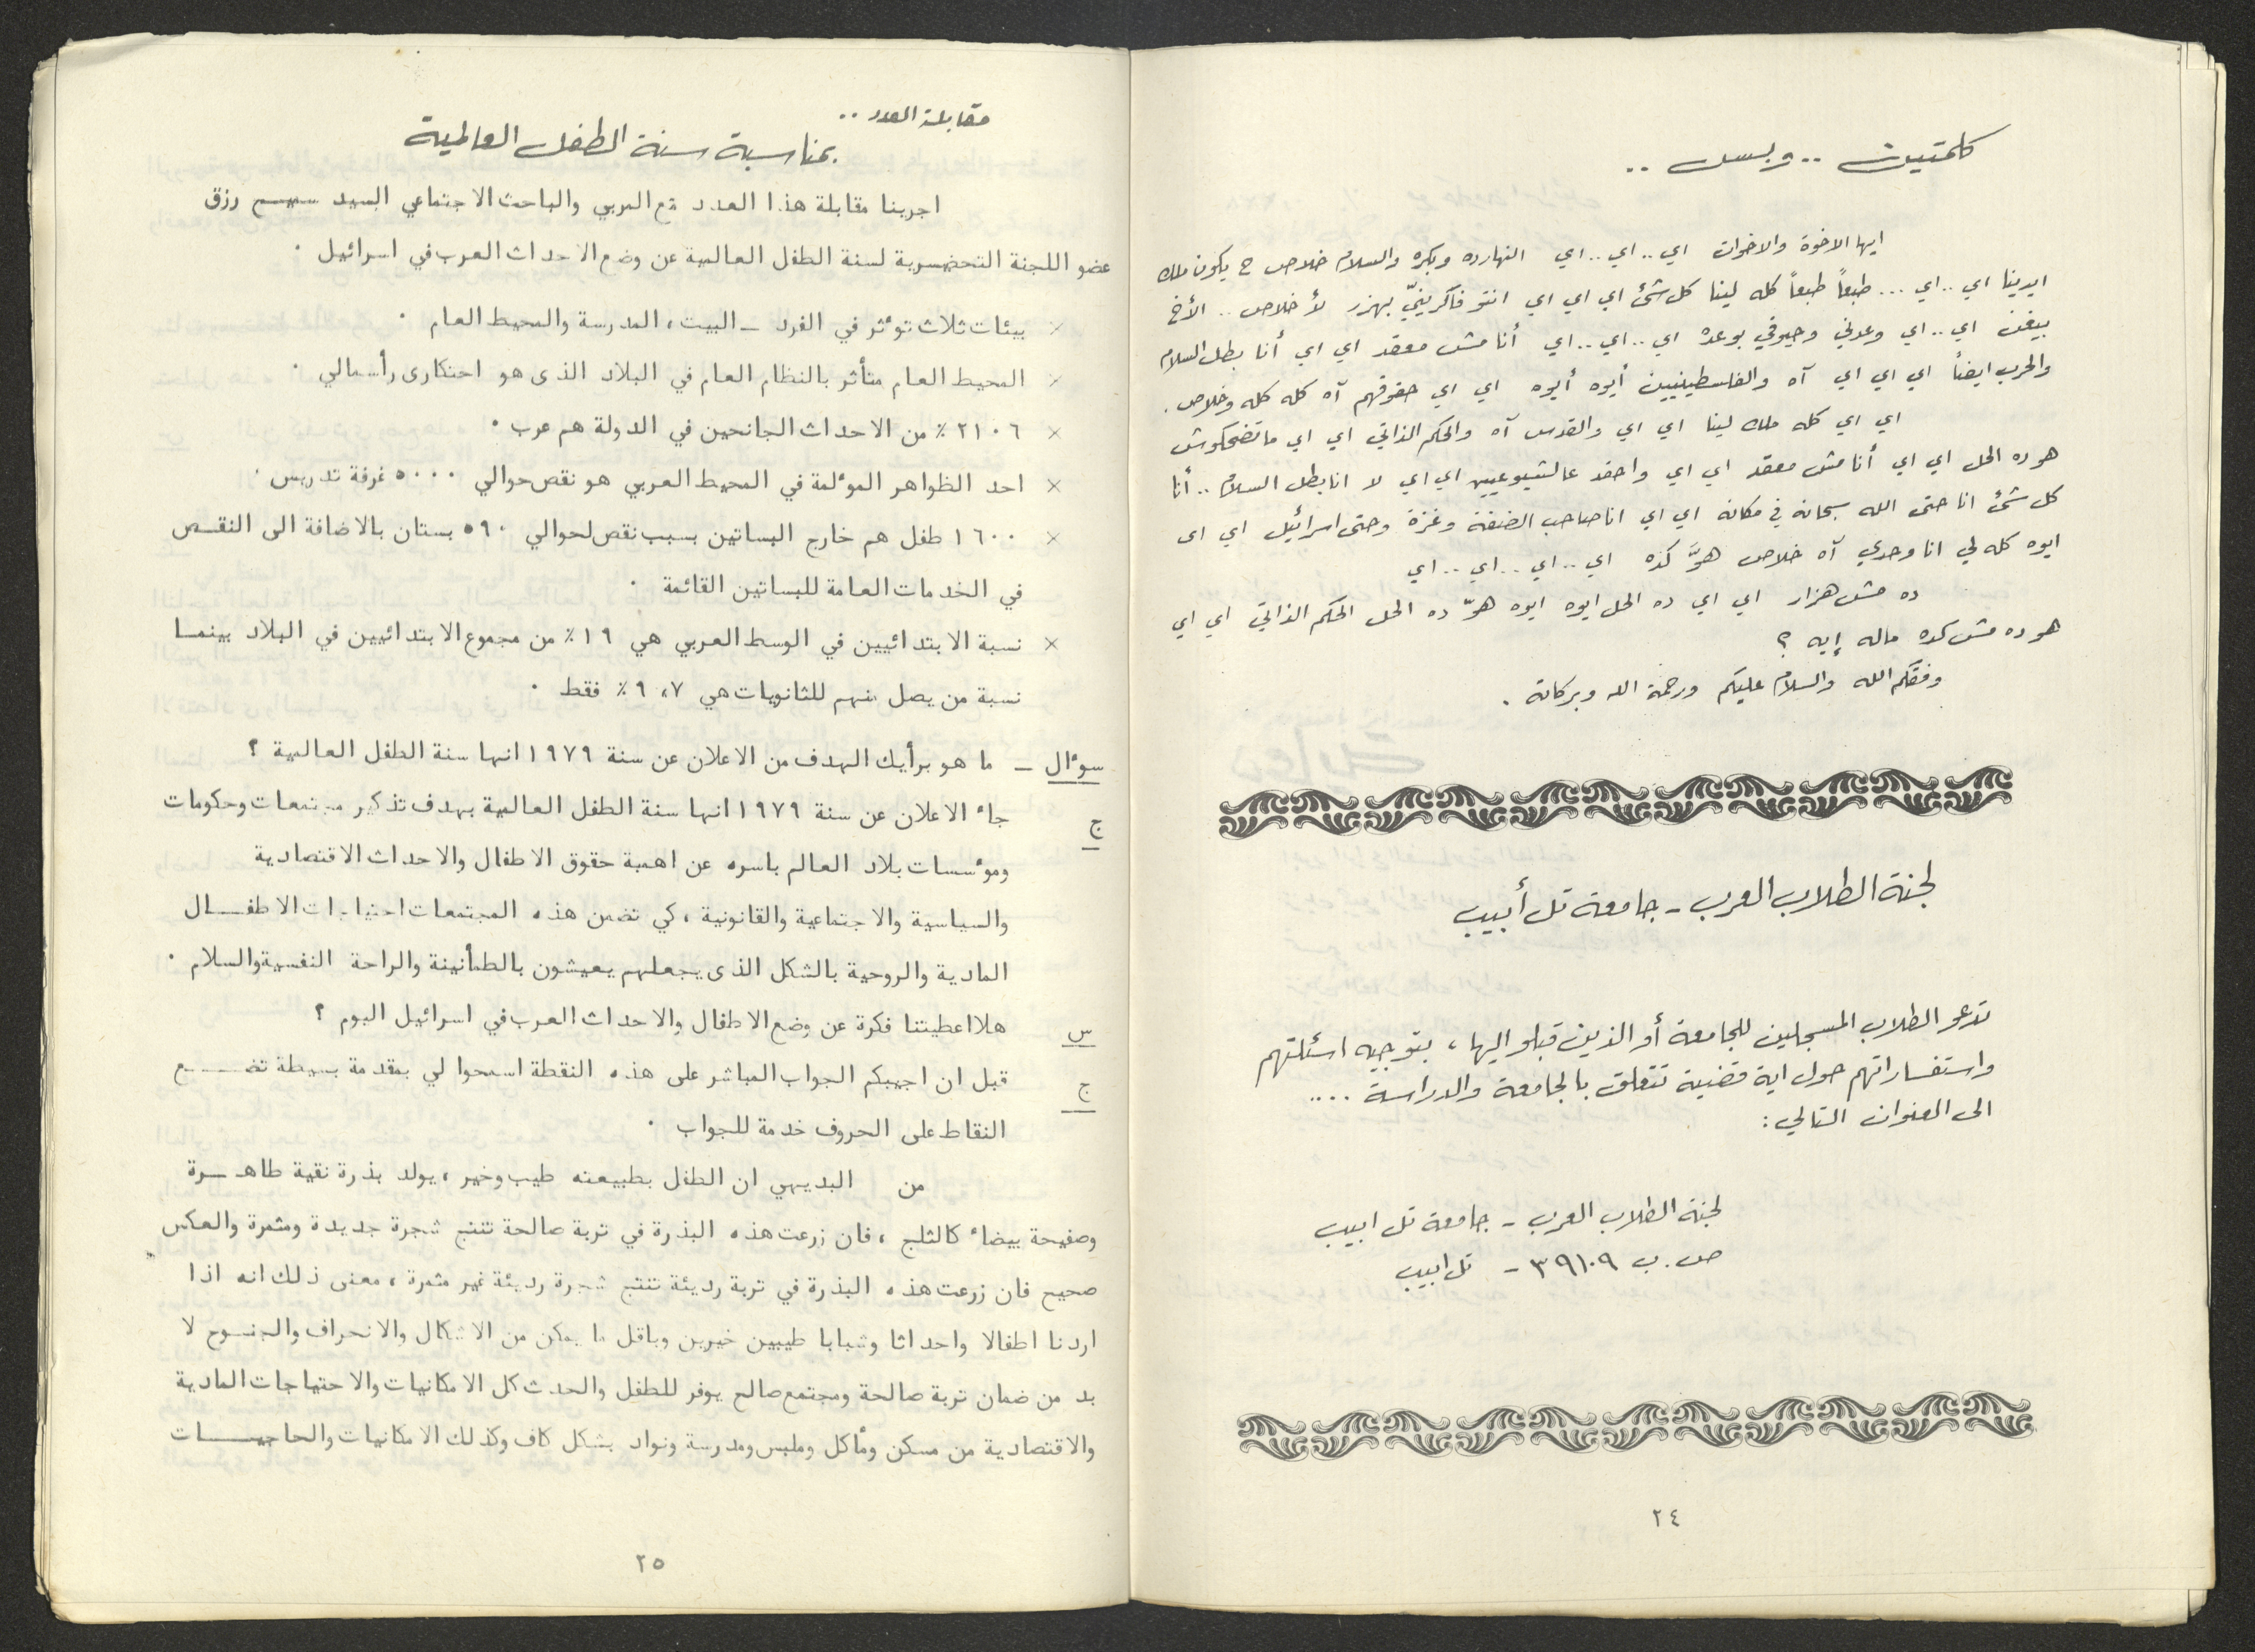 كلمتين .. وبس ..
ايها الاخوة والاخوات اي .. اي .. اي النهارده وبكره والسلام خلاص ح يكون ملك
ايدينا اي .. اي ... طبعاً طبعاً كله لينا كل شئ اي اي اي انتو فاكرينيّ بهزر لأ خلاص .. الأخ
بيغن اي .. اي وعدني وحيوفي بوعده اي .. اي .. اي أنا مش معقد اي اي أنا بطل السلام
والحرب ايضاً اي اي اي آه والفلسطينيين أيوه أيوه اي اي حقوقهم آه كله كله وخلاص .
اي اي كله ملك لينا اي اي والقدس آه والحكم الذاتي اي اي ماتضحكوش
هو ده الحل اي اي أنا مش معقد اي اي واحقد عالشيوعيين اي اي لا انا بطل السلام .. أنا
كل شئ انا حتى الله سبحانه في مكانه اي اي انا صاحب الضفة وغزة وحتى اسرائيل اي اى
ايوه كله لي انا وحدي آه خلاص هوَّ كذه اي .. اي .. اي .. اي
ده مش هزار اي اي ده الحل ايوه ايوه هوّ ده الحل الحكم الذاتي اي اي
هو ده مش كده ماله إيه ؟
وفقكم الله والسلام عليكم ورحمة الله وبركاته .
لجنة الطلاب العرب - جامعة تل أبيب
تدعو الطلاب المسجلين للجامعة أو الذين قبلو اليها ، بتوجيه اسئلتهم
واستفساراتهم حول اية قضية تتعلق بالجامعة والدراسة ....
الى العنوان التالي :
لجنة الطلاب العرب - جامعة تل ابيب
ص . ب ٣٩١٠٩ - تل ابيب
٢٤
مقابلة العدد ..
بمناسبة سنة الطفل العالمية
اجرينا مقابلة هذا العدد مع المربي والباحث الاجتماعي السيد سيم رزق
عضو اللجنة التحضيرية لسنة الطفل العالمية عن وضع الاحداث العرب في اسرائيل ٠
× بيئات ثلاث توٴثر في الفرد ــ البيت ، المدرسة والمحيط العام ٠
× المحيط العام متأثر بالنظام العام في البلاد الذى هو احتكارى رأسمالي ٠
× ٢١٠٦ ٪ من الاحداث الجانحين في الدولة هم عرب ٠
× احد الظواهر الموٴلمة في المحيط العربي هو نقص حوالي ٥٠٠٠ غرفة تدريس ٠
× ١٦٠٠ طفل هم خارج البساتين بسبب نقص لحوالي ٥٩٠ بستان بالاضافة الى النقـص
في الخدمات العامة للبساتين القائمة ٠
× نسبة الابتدائيين في الوسط العربي هي ١٩٪ من مجموع الابتدائيين في البلاد بينمـا
نسبة من يصل منهم للثانويات هي ٩،٧٪ فقط ٠
سوٴال ــ ما هو برأيك الهدف من الاعلان عن سنة ١٩٧٩ انها سنة الطفل العالمية ؟
ج جاءٴ الاعلان عن سنة ١٩٧٩ انها سنة الطفل العالمية بهدف تذكير مجتمعات وحكومات
وموٴسسات بلاد العالم باسره عن اهمية حقوق الاطفال والاحداث الاقتصادية
والسياسية والاجتماعية والقانونية ، كي تضمن هذه المجتمعات احتياجات الاطفـال
المادية والروحية بالشكل الذى يجعلهم يعيشون بالطمأنينة والراحة النفسية والسلام ٠
س هلا اعطيتنا فكرة عن وضع الاطفال والاحداث العرب في اسرائيل اليوم ؟
ج قبل ان اجيبكم الجواب المباشر على هذه النقطة اسمحوا لي بمقدمة بسيطة تضـــع
النقاط على الحروف خدمة للجواب ٠
من البديهي ان الطفل بطبيعته طيب وخير ، يولد بذرة نقية طاهـــرة
وصفيحة بيضاءٴ كالثلج ، فان زرعت هذه البذرة في تربة صالحة تنتج شجرة جديدة ومثمرة والعكس
صحيح فان زرعت هذه البذرة في تربة رديئة تنتج شجرة رديئة غير مثمرة ، معنى ذلك انه اذا
اردنا اطفالا واحداثا وشبابا طيبين خيرين وباقل ما يمكن من الاشكال والانحراف والجنـوح لا
بد من ضمان تربة صالحة ومجتمع صالح يوفر للطفل والحدث كل الامكانيات والاحتياجات المادية
والاقتصادية من مسكن ومأكل وملبس ومدرسة ونواد بشكل كاف وكذلك الامكانيات والحاجيـــات
٢٥